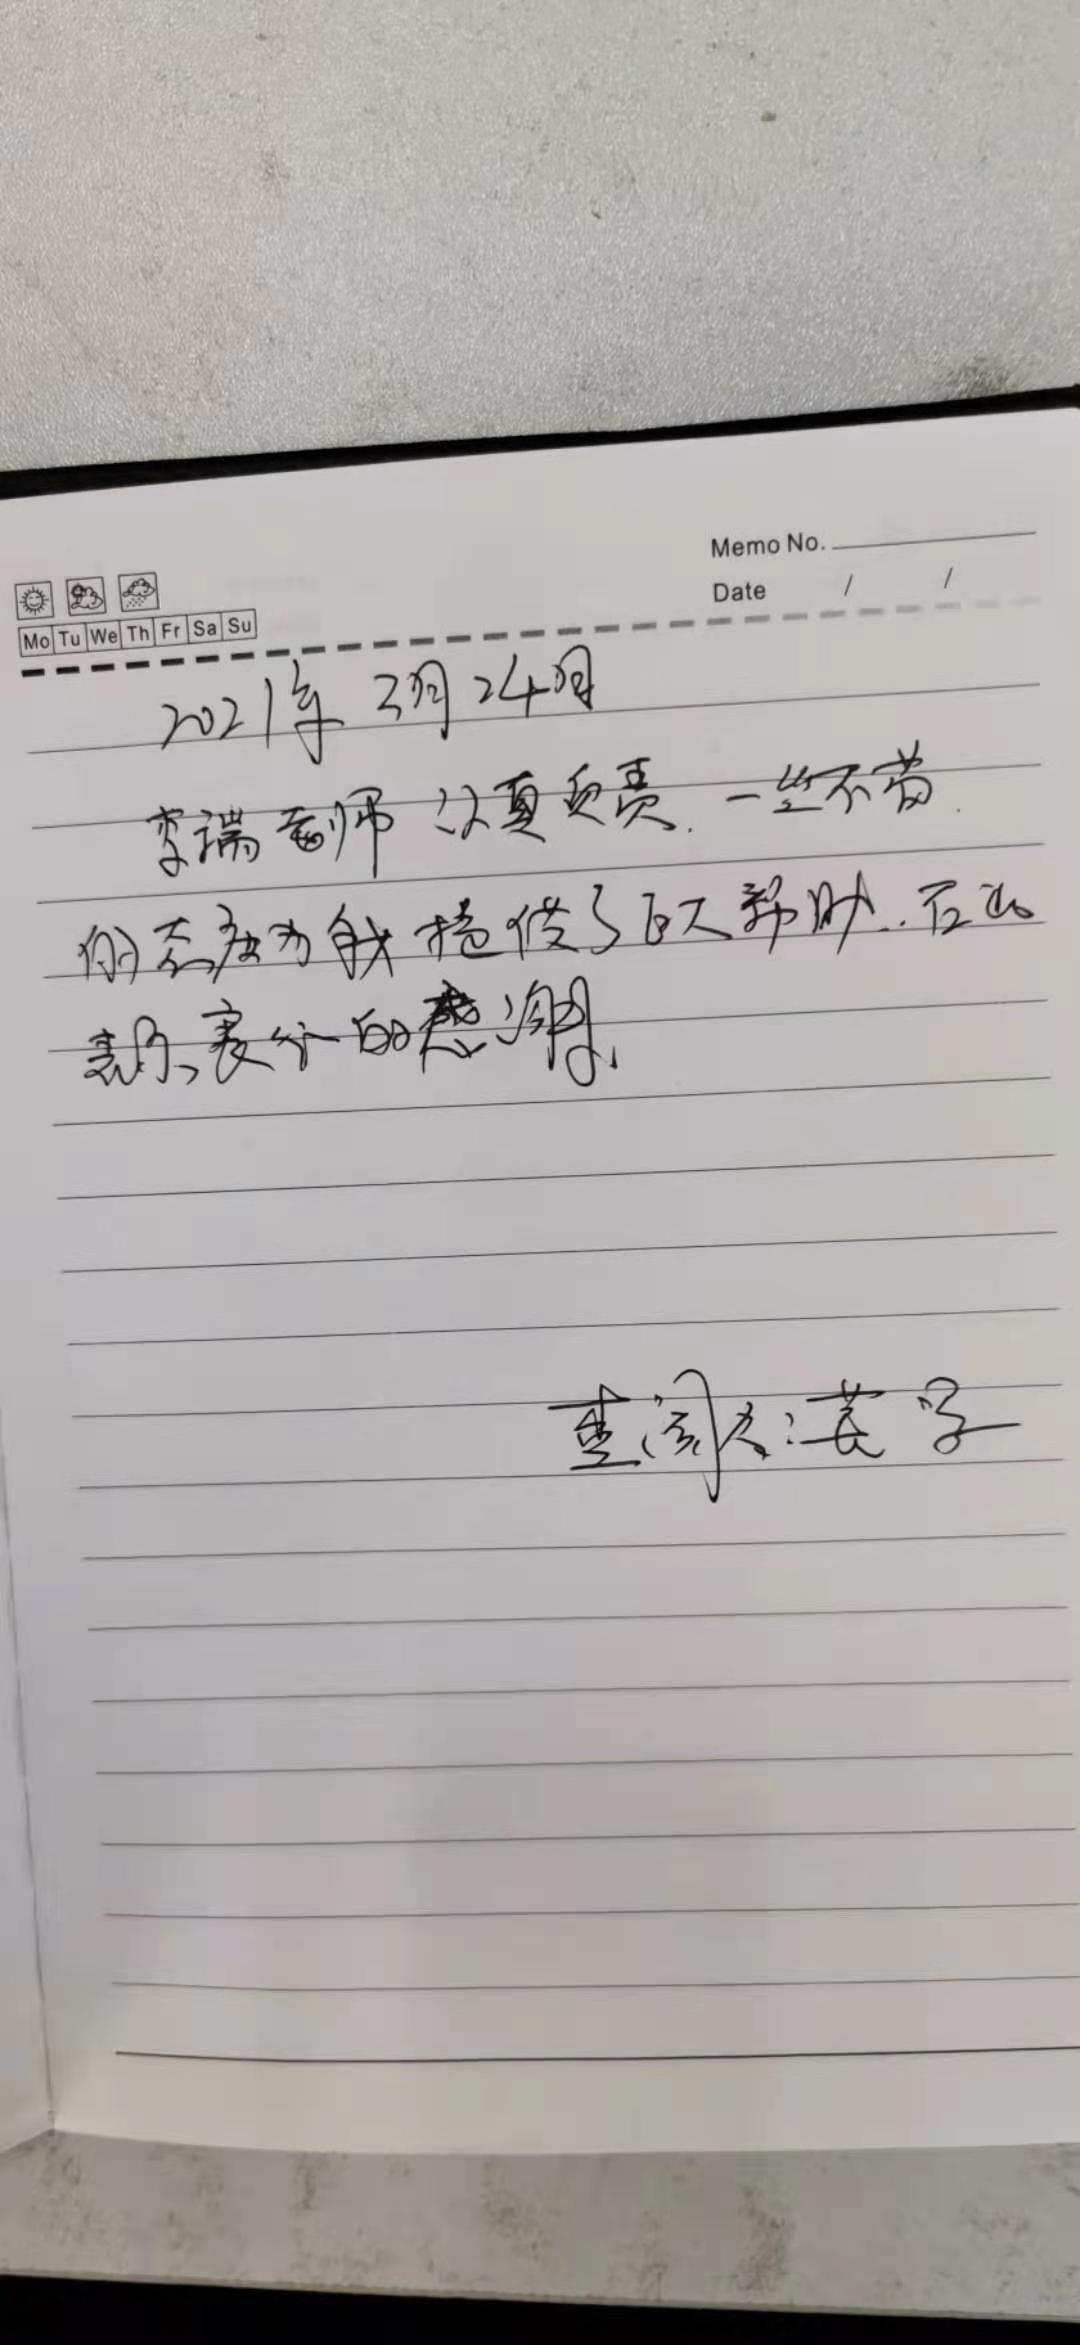 Memo No.
Date / /
Mo Tu We Th Fr Sa Su
2021年3月24日
李瑞老师认真负责.一丝不苟.
的态度为我提供了巨大帮助..在此
表示衷心的感谢.
查阅人: